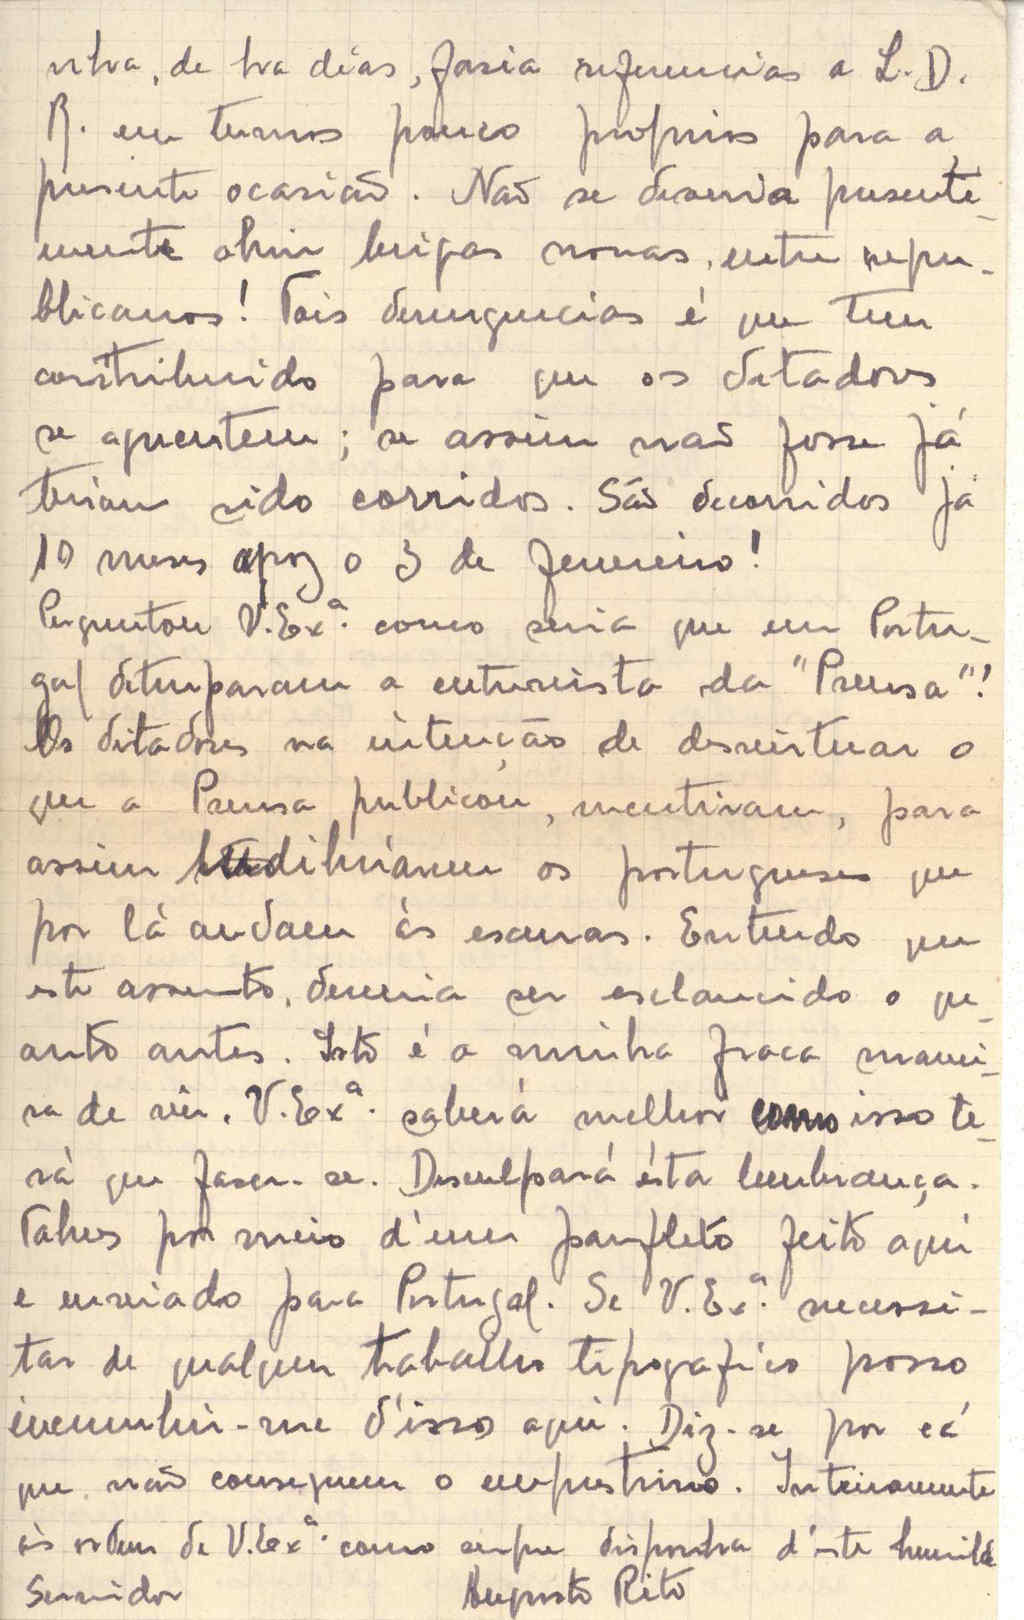 nha, de ha dias, fasia referencias a L. D.
R. em termos pouco proprios para a
presente ocasião. Não se deveria presente-
mente abrir brigas novas, entre repu-
blicanos! Tais divergencias é que tem
contribuido para que os ditadores
se aguentem; se assim não fosse já
teriam sido corridos. São decorridos já
10 meses apoz o 3 de fevereiro!
Perguntou V. Exª. como seria que em Portu-
gal deturparam a entrevista da "Prensa"!
Os ditadores na intenção de desvirtuar o
que a Prensa publicou, mentiram, para
assim ludibriarem os portugueses que
por lá andam às escuras. Entendo que
este assunto, deveria ser esclarecido o qu-
anto antes. Isto é a minha fraca manei-
ra de vêr. V. Exª. saberá melhor como isso te-
rá que faser-se. Desculpará ésta lembrança.
Talves por meio d'um panfleto feito aqui
e enviado para Portugal. Se V. Exª. necessi-
tar de qualquer trabalho tipografico posso
incumbir-me d'isso aqui. Diz-se por cá
que não conseguem o emprestimo. Inteiramente
às ordem de V. Exª. como sempre disponha d'este humilde
Servidor Augusto Rito